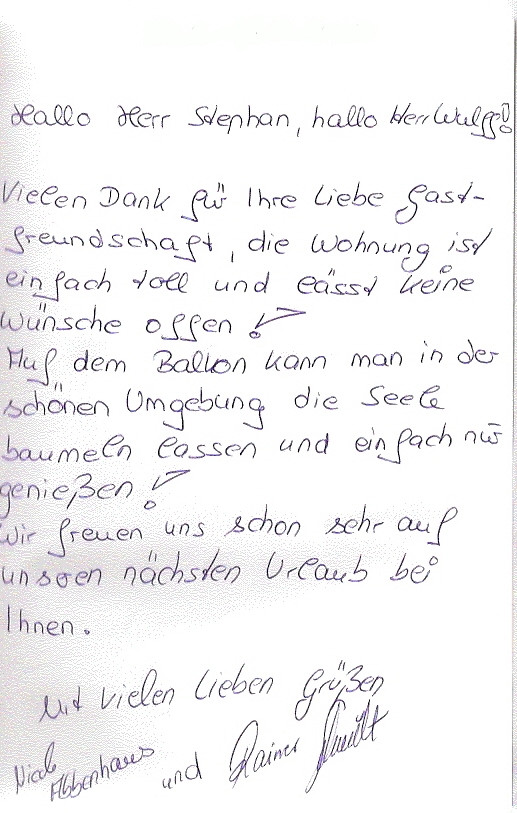 Hallo Herr Stephan, hallo Herr Wulff!
Vielen Dank für Ihre Liebe Gast-
freundschaft, die Wohnung ist
einfach toll und lässt keine
Wünsche offen!
Auf dem Balkon kann man in der
schönen Umgebung die Seele
baumeln lassen und einfach nur
genießen!
Wir freuen uns schon sehr auf
unseren nächsten Urlaub bei
Ihnen.
Mit vielen Lieben Grüßen
Nicole
Abbenhaus
und Rainer